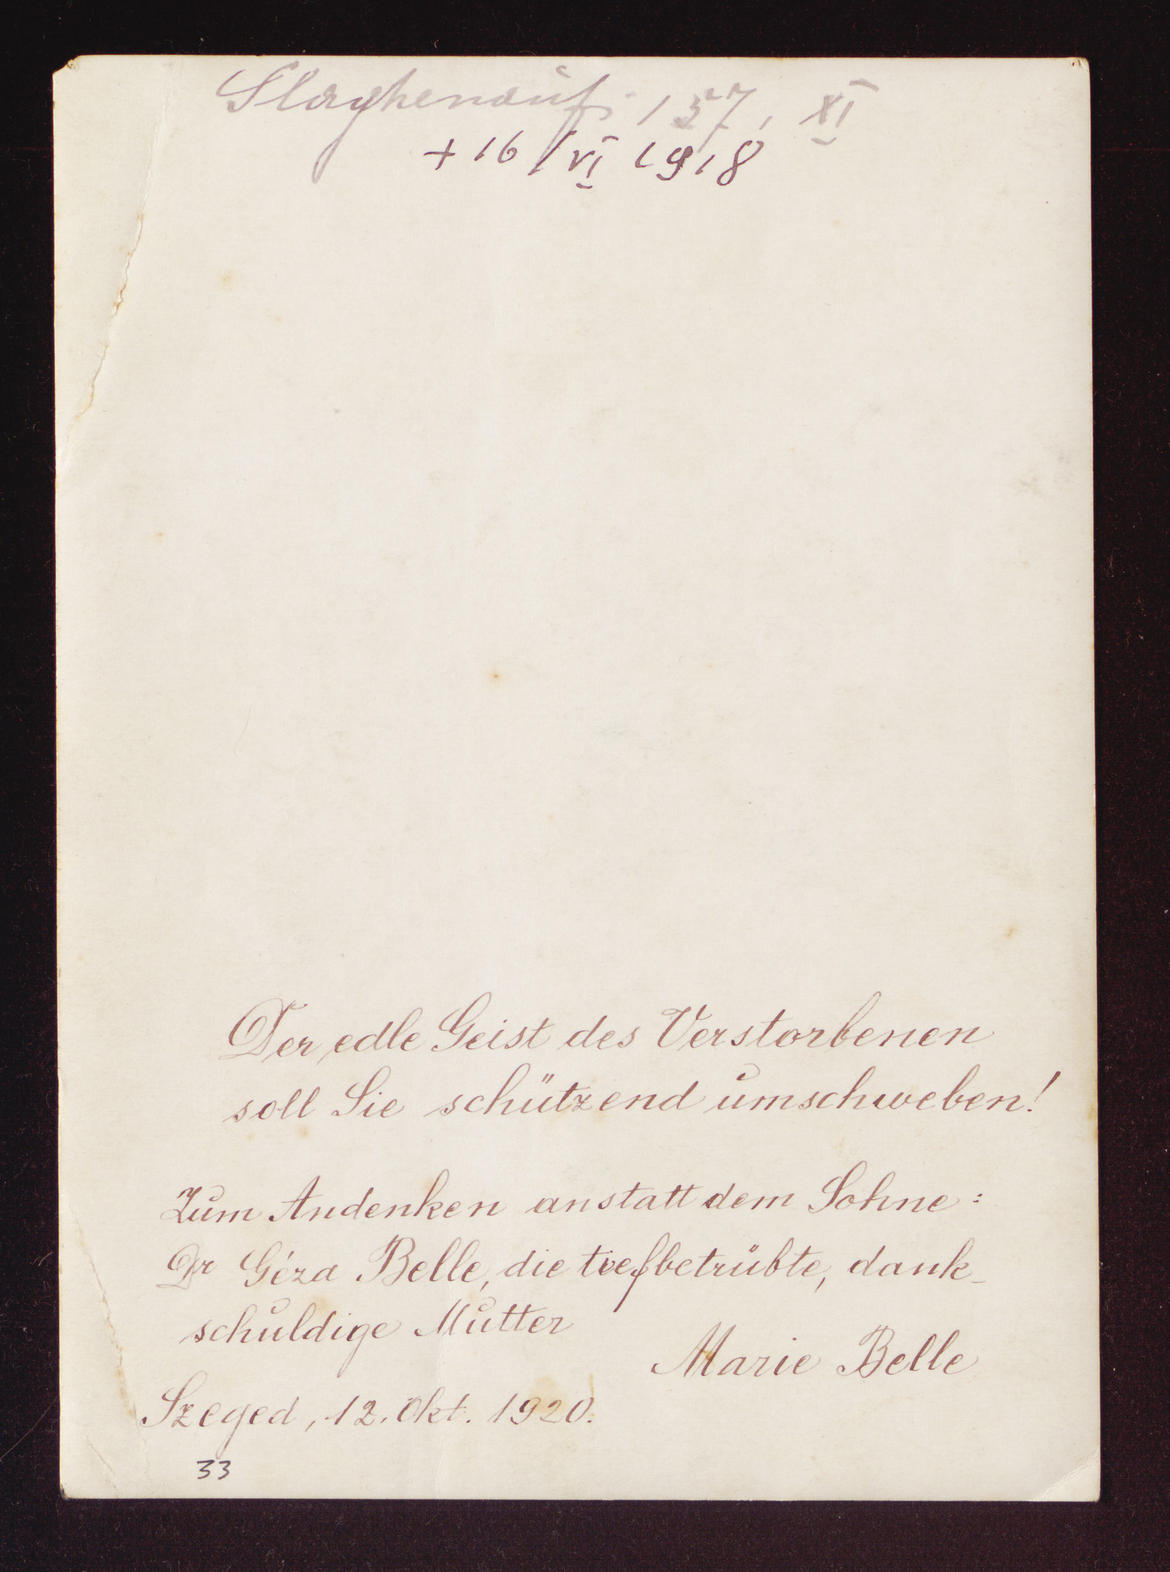 157, XI
+ 16/VI 1918
Der edle Geist des Verstorbenen
soll Sie schützend umschweben!
Zum Andenken anstatt dem Sohne:
Dr Géza Belle, die tiefbetrübte, dank-
schuldige Mutter
Marie Belle
Szeged, 12. Okt. 1920.
33